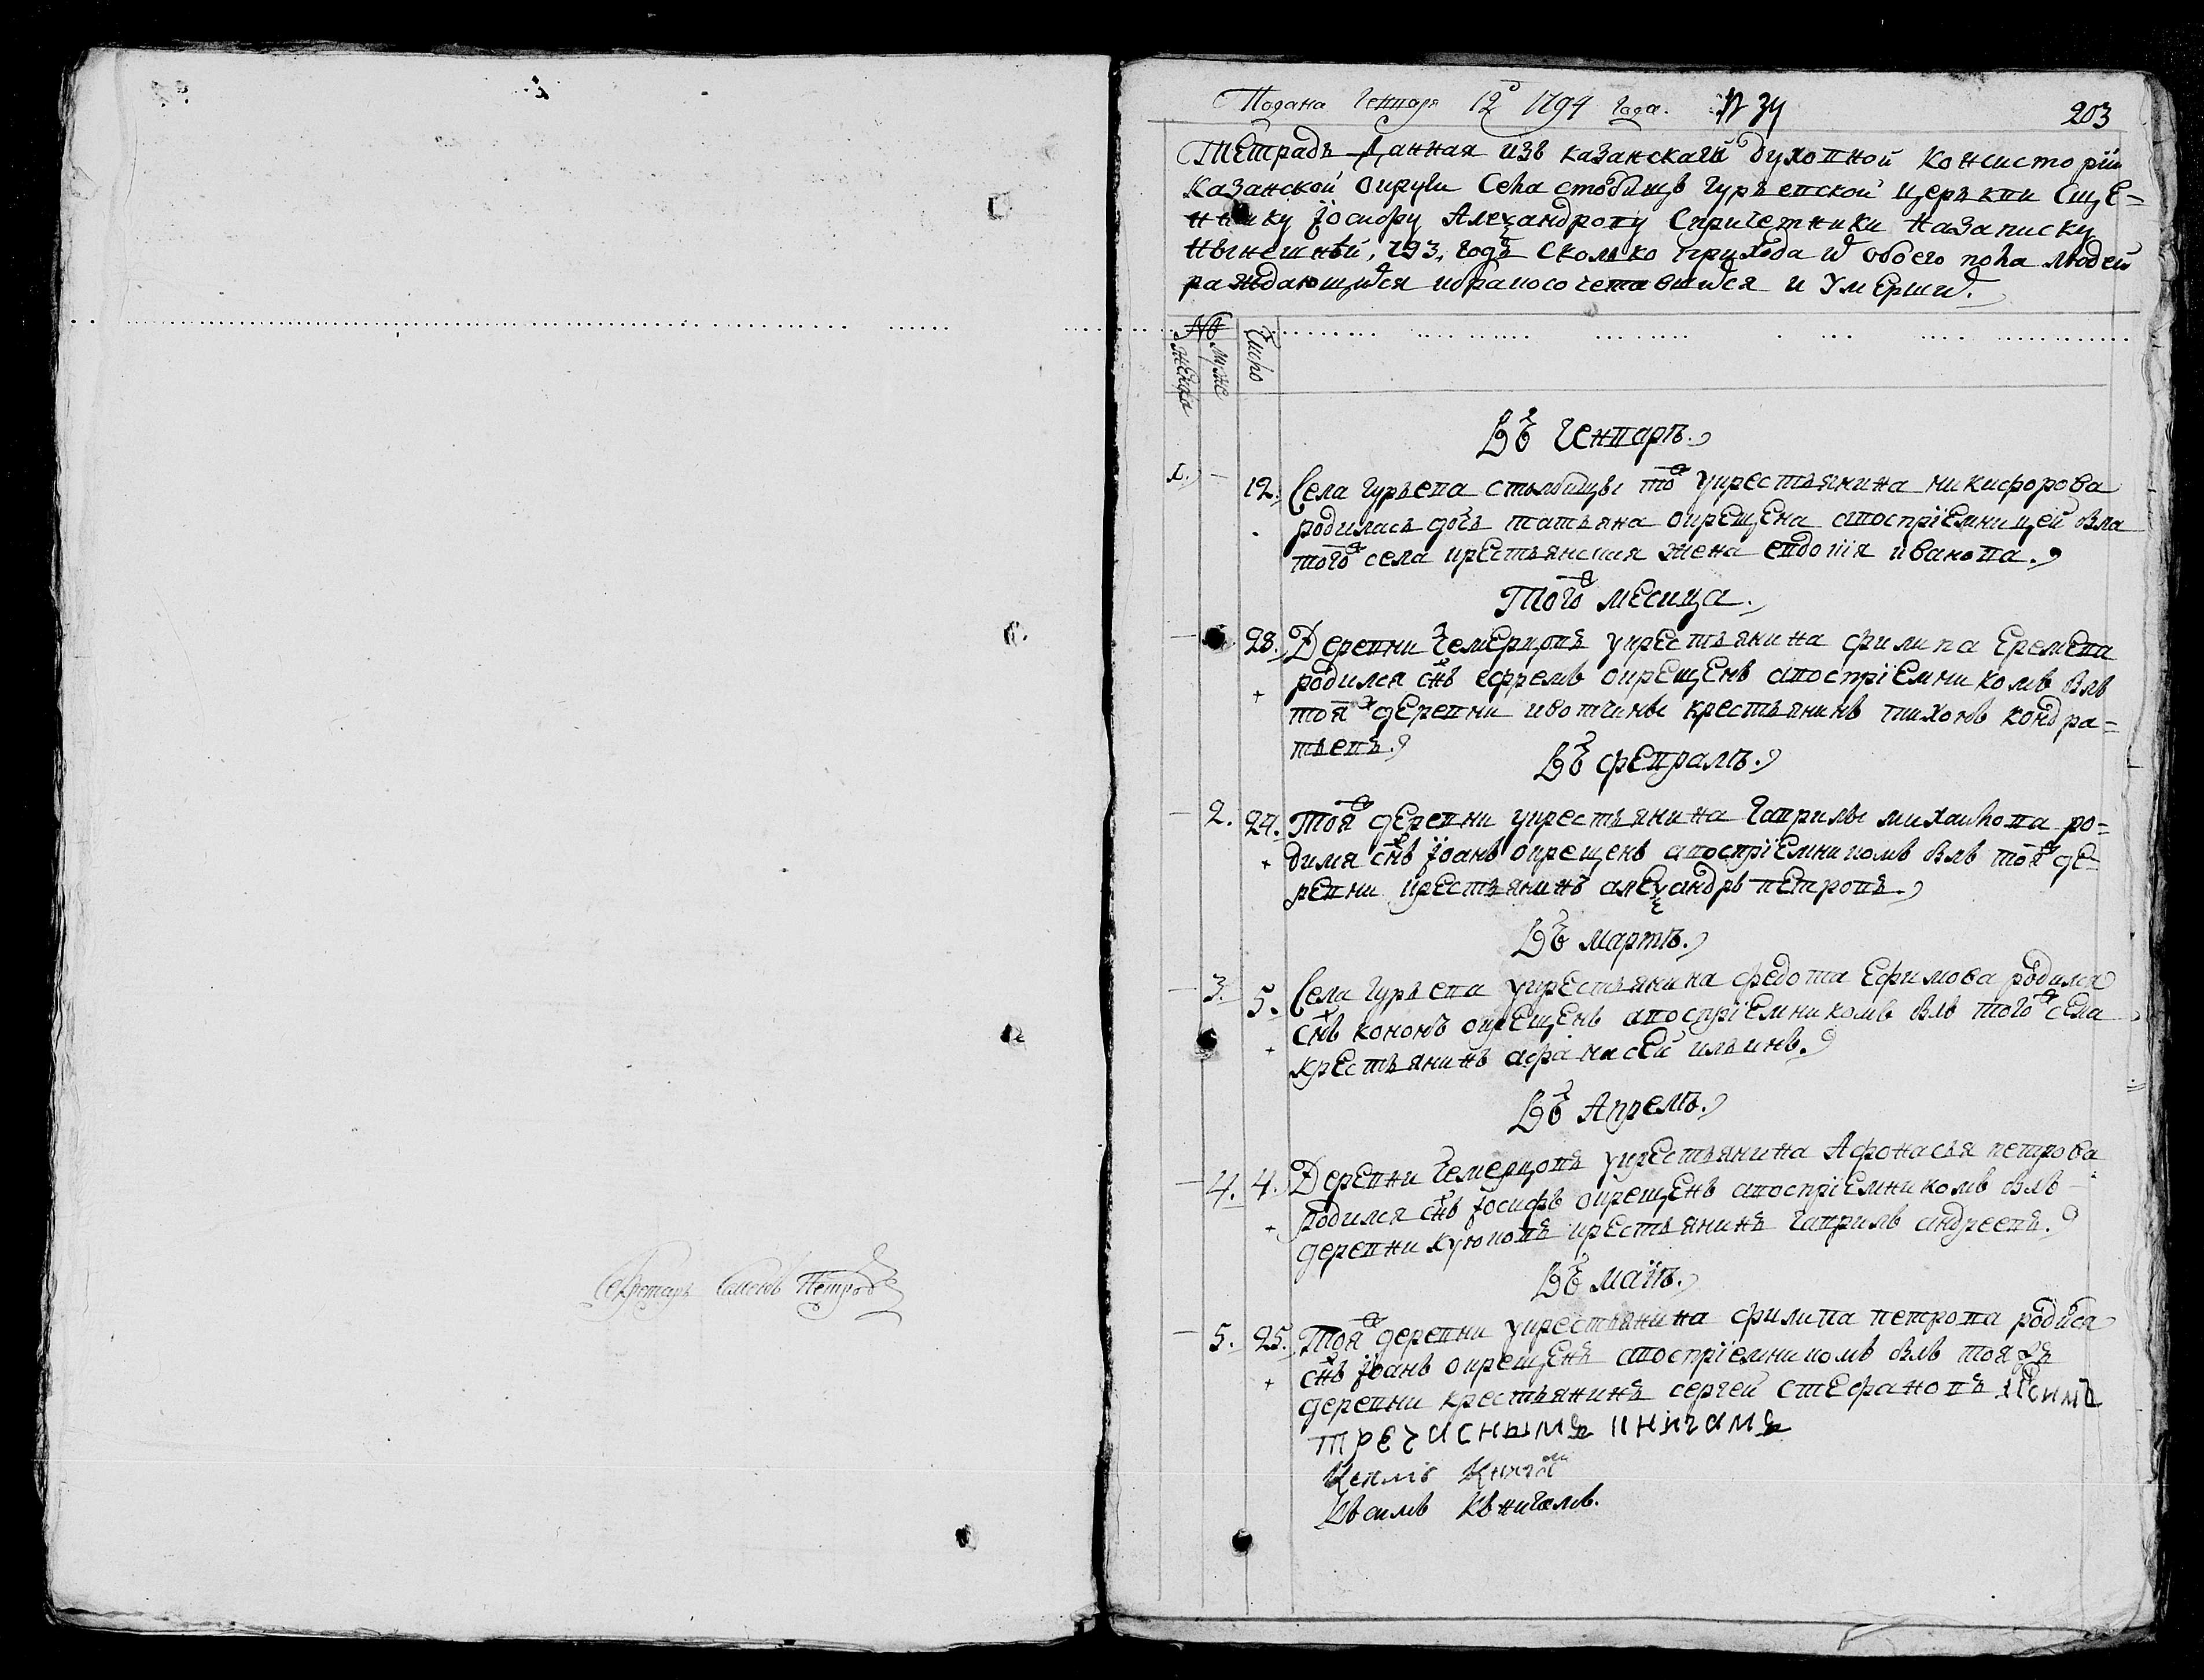 Секретарь Семенъ Петровъ
Подана Генваря 12г 1794 года. № 34
203
Тетрадь Данная изъ казанскай духовной Консисторїи
Казанской округи Села столбищъ гурьевской церькви Сще-
ннику Їосифу Александрову Спричетники Назаписку
Нынешнѣй, 793, годъ Сколько прихода ѿ обоего пола людей
раждающихся ибракосочетавшихся и Умершихъ.
№
женска муже Число
Въ Генварѣ.
1. - 12. Села гурьева столбищы тожъ укрестьянина никифорова
родилась дочь татьяна окрещена авоспрїемницей была
тогожъ села крестьянская жена евдокїя иванова.
Тогожъ месица.
- 28. Деревни Чемерцовъ укрестьянина филипа Еремеева
родился снъ ефремъ окрещенъ авоспрїемникомъ былъ
тояжъ деревни ивотчины крестьянинъ тихонъ кондра-
тьевъ.
Въ февралѣ.
- 2. 24. Тояжъ деревни укрестьянина Гаврилы михайлова ро-
дился снъ їоанъ окрещенъ авоспрїемникомъ былъ тояжъ де-
ревни крестьянинъ алеѯандръ петровъ.
Въ мартѣ.
- 3. 5. Села гурьева укрестьянина федота Ефимова родился
снъ кононъ окрещенъ авоспрїемникомъ былъ тогожъ села
крестьянинъ афанасей ильинъ.
Въ Апрелѣ.
- 4. 4. Деревни Чемерцовъ укрестьянина Афонасья петрова
родился снъ їосифъ окрещенъ авоспрїемникомъ былъ
деревни куюковъ крестьянинъ гаврилъ андреевъ.
Въ маїѣ.
- 5. 25. Тояжъ деревни укрестьянина филипа петрова родился
снъ їоанъ окрещенъ авоспрїемникомъ былъ тояжъ
деревни крестьянинъ сергей стефановъ Ксимъ
тречаснымъ книгамъ
Ксимъ Книгамъ
Къ симъ Кънигамъ.